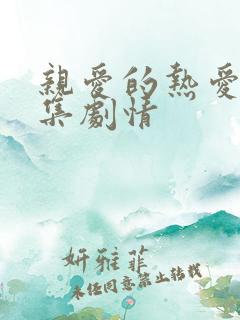 親愛的熱愛
集劇情
妍雅菲
未经同意禁止转载